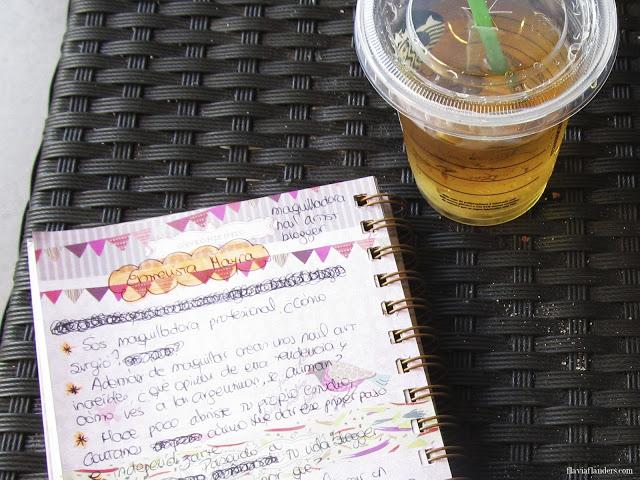 maquilladora
nail artist
blogger
Entrevista Mayra
Sos maquilladora profesional ¿Cómo
surgió?
Además de maquillar creas unos nail art
increíbles, ¿qué opinás de esa tendencia y
cómo ves a las argentinas, se animan?
Hace poco abriste tu propio estudio,
cuéntanos cómo fue dar ese primer paso
e independizarte
Pasando a tu vida blogger
por que
flaviaflanders.com